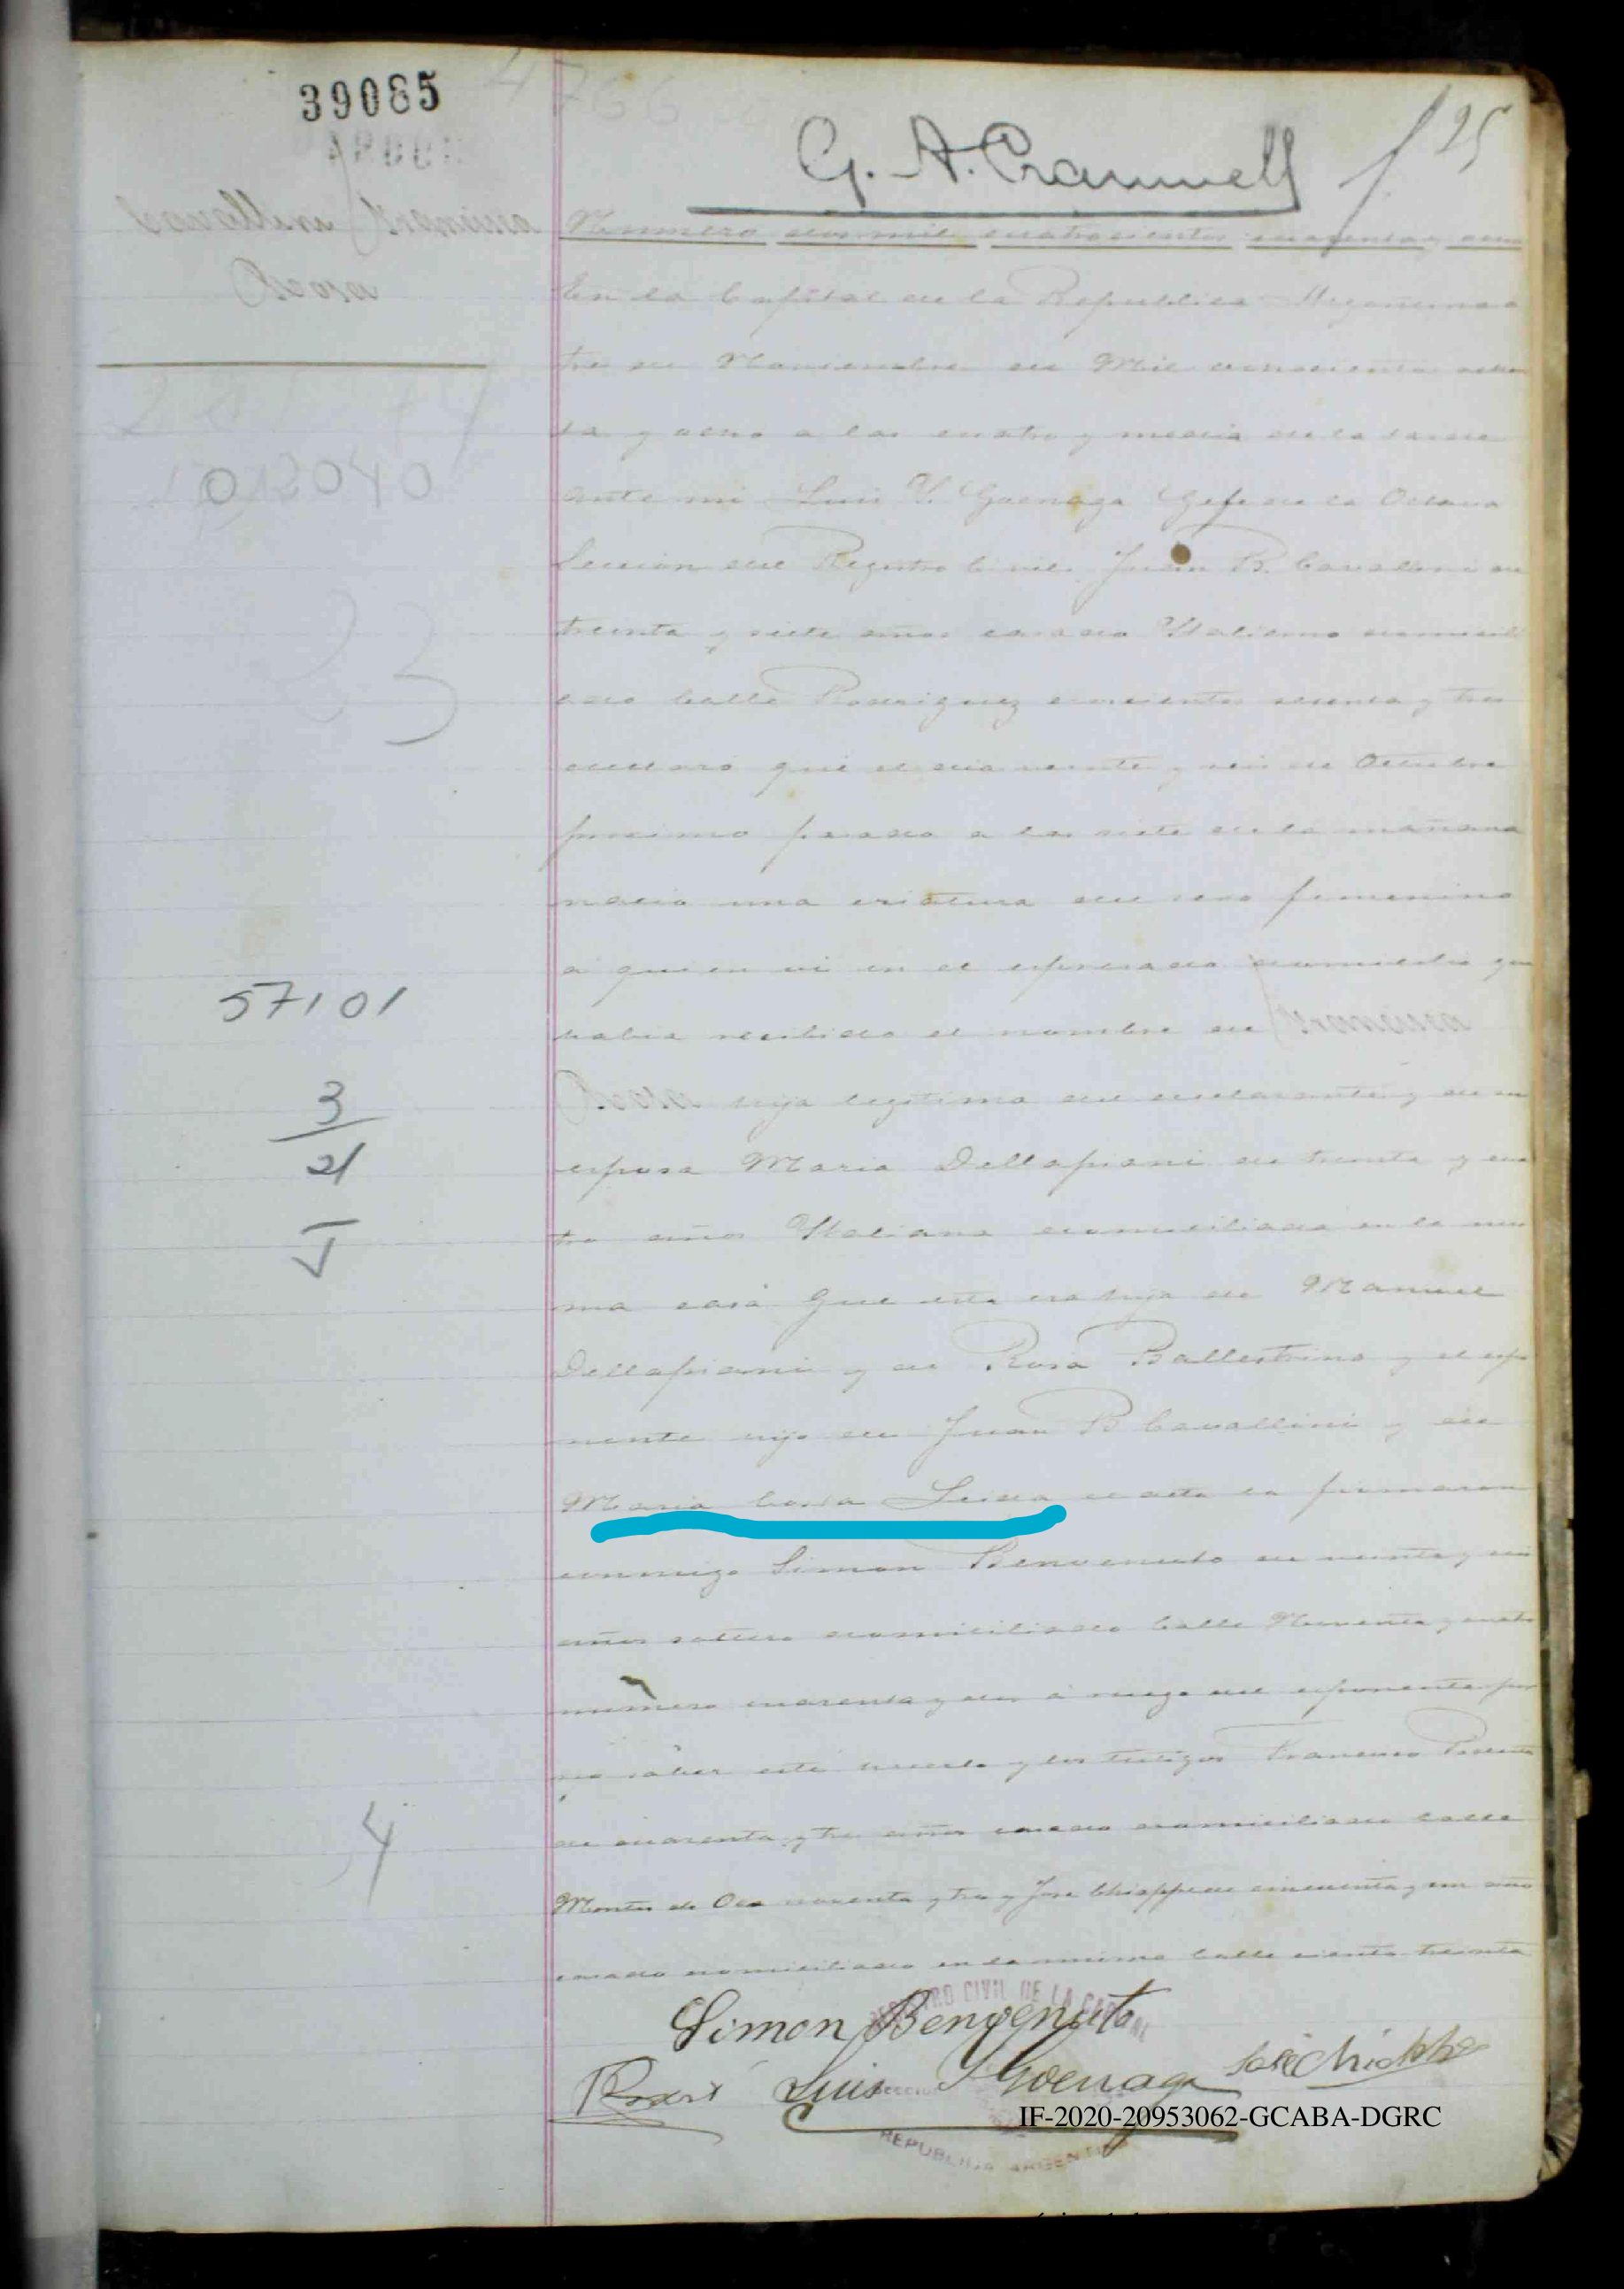 39085
4766
G. A. Cranwell
f 25
Cavallini Francisca
Rosa
Numero dos mil cuatrocientos cuarenta y ocho
En la Capital de la Republica Argentina a
tres de Noviembre de Mil ochocientos ochen
ta y ocho a las cuatro y media de la tarde
ante mi Luis Y. Goenaga Gefe de la Octava
Seccion del Registro Civil, Juan B. Cavallini de
treinta y siete años casado Italiano domicili
ado Calle Rodriguez doscientos sesenta y tres
declaró que el dia veinte y seis de Octubre
proximo pasado a las siete de la mañana
nació una criatura del sexo femenino
a quien vi en el espresado domicilio que
habia recibido el nombre de Francisca
Rosa hija legitima del declarante y de su
esposa Maria Dellapiani de treinta y cua
tro años Italiana domiciliada en la mis
ma casa Que esta era hija de Manuel
Dellapiani y de Rosa Ballestrino y el espo
nente hijo de Juan B Cavallini y de
Maria Costa Leida el acta la firmaron
conmigo Simon Benvenuto de veinte y seis
años soltero domiciliado Calle Noventa y cuatro
numero cuarenta y dos á ruego del esponente por
no saber este hacerlo y los testigos Francisco
de cuarenta y tres años casado domiciliado calle
Montes de Oca noventa y tres y José Chiappe de cincuenta y un años
casado domiciliado en la misma Calle ciento treinta
012040
23
57101
3
21
4
Simon Benvenuto
Luis Y Goenaga José Chiappe
REGISTRO CIVIL DE LA CAPITAL
SECCION
REPUBLICA ARGENTINA
IF-2020-20953062-GCABA-DGRC